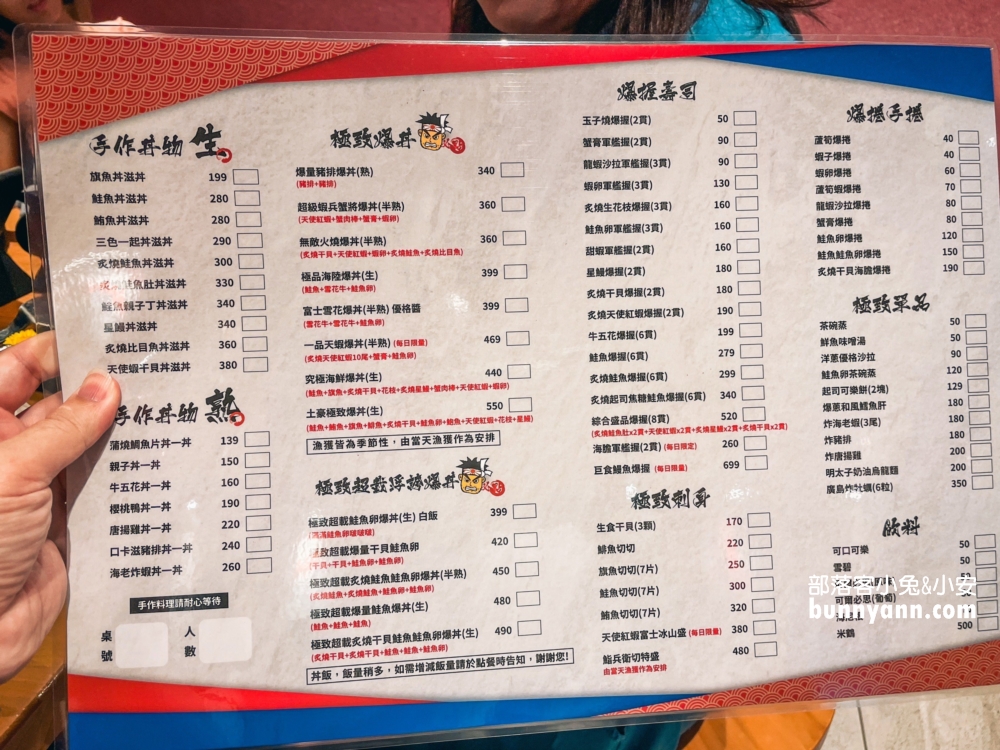 手作丼物 生
旗魚丼滋丼 199
鮭魚丼滋丼 280
鮪魚丼滋丼 280
三色一起丼滋丼 290
炙燒鮭魚丼滋丼 300
炙燒鮭魚肚丼滋丼 330
鮭魚親子丁丼滋丼 340
星鰻丼滋丼 340
炙燒比目魚丼滋丼 360
天使蝦干貝丼滋丼 380
手作丼物 熟
蒲燒鯛魚片丼一丼 139
親子丼一丼 150
牛五花丼一丼 160
櫻桃鴨丼一丼 190
唐揚雞丼一丼 220
口卡滋豬排丼一丼 240
海老炸蝦丼一丼 260
手作料理請耐心等待
桌號 人數
極致爆丼
爆量豬排爆丼(熟) 340
(豬排+豬排)
超級蝦兵蟹將爆丼(半熟) 360
(天使紅蝦+蟹肉棒+蟹膏+蝦卵)
無敵火燒爆丼(半熟) 360
(炙燒干貝+天使紅蝦+蝦卵+炙燒鮭魚+炙燒比目魚)
極品海陸爆丼(生) 399
(鮭魚+雪花牛+鮭魚卵)
富士雪花爆丼(半熟) 優格醬 399
(雪花牛+雪花牛+鮭魚卵)
一品天蝦爆丼(半熟) (每日限量) 469
(炙燒天使紅蝦10尾+蟹膏+鮭魚卵)
究極海鮮爆丼(生) 440
(鮭魚+旗魚+炙燒干貝+花枝+炙燒星鰻+蟹肉棒+天使紅蝦+蝦卵)
土豪極致爆丼(生) 550
(鮭魚+鮪魚+旗魚+鯡魚+炙燒干貝+鮭魚卵+鮑魚+天使紅蝦+花枝+星鰻)
漁獲皆為季節性，由當天漁獲作為安排
極致超載浮誇爆丼
極致超載鮭魚卵爆丼(生) 白飯 399
(滿滿鮭魚卵啵啵啵)
極致超載爆量干貝鮭魚卵 420
(干貝+干貝+鮭魚卵+鮭魚卵)
極致超載炙燒鮭魚鮭魚卵爆丼(半熟) 450
(炙燒鮭魚+炙燒鮭魚+鮭魚卵+鮭魚卵)
極致超載爆量鮭魚爆丼(生) 480
(鮭魚+鮭魚+鮭魚)
極致超載炙燒干貝鮭魚鮭魚卵爆丼(生) 490
(炙燒干貝+炙燒干貝+鮭魚+鮭魚+鮭魚卵)
丼飯，飯量稍多，如需增減飯量請於點餐時告知，謝謝您!
爆握壽司
玉子燒爆握(2貫) 50
蟹膏軍艦握(2貫) 90
龍蝦沙拉軍艦握(3貫) 90
蝦卵軍艦握(3貫) 130
炙燒生花枝爆握(3貫) 160
鮭魚卵軍艦握(3貫) 160
甜蝦軍艦爆握(2貫) 160
星鰻爆握(2貫) 180
炙燒干貝爆握(2貫) 180
炙燒天使紅蝦爆握(2貫) 190
牛五花爆握(6貫) 199
鮭魚爆握(6貫) 279
炙燒鮭魚爆握(6貫) 299
炙燒起司焦糖鮭魚爆握(6貫) 340
綜合盛品爆握(8貫) 520
(炙燒鮭魚肚x2貫+天使紅蝦x2貫+炙燒星鰻x2貫+炙燒干貝x2貫)
海膽軍艦握(2貫) (每日限定) 260
巨食鰻魚爆握 (每日限量) 699
極致刺身
生食干貝(3顆) 170
鯡魚切切 220
旗魚切切(7片) 250
鮭魚切切(7片) 300
鮪魚切切(7片) 320
天使紅蝦富士冰山盛 (每日限量) 380
鮨兵衛切特盛 480
由當天漁獲作為安排
爆捲手捲
蘆筍爆捲 40
蝦子爆捲 40
蝦卵爆捲 60
蘆筍蝦爆捲 70
龍蝦沙拉爆捲 80
蟹膏爆捲 80
鮭魚卵爆捲 120
鮭魚鮭魚卵爆捲 150
炙燒干貝海膽爆捲 190
極致菜品
茶碗蒸 50
鮮魚味噌湯 50
洋蔥優格沙拉 90
鮭魚卵茶碗蒸 120
起司可樂餅(2塊) 129
爆蔥和風鱈魚肝 180
炸海老蝦(3尾) 180
炸豬排 180
炸唐揚雞 200
明太子奶油烏龍麵 200
廣島炸牡蠣(6粒) 350
飲料
可口可樂 50
雪碧 50
可爾必思(葡萄) 50
米鶴 500
部落客小兔&小安
bunnyann.com